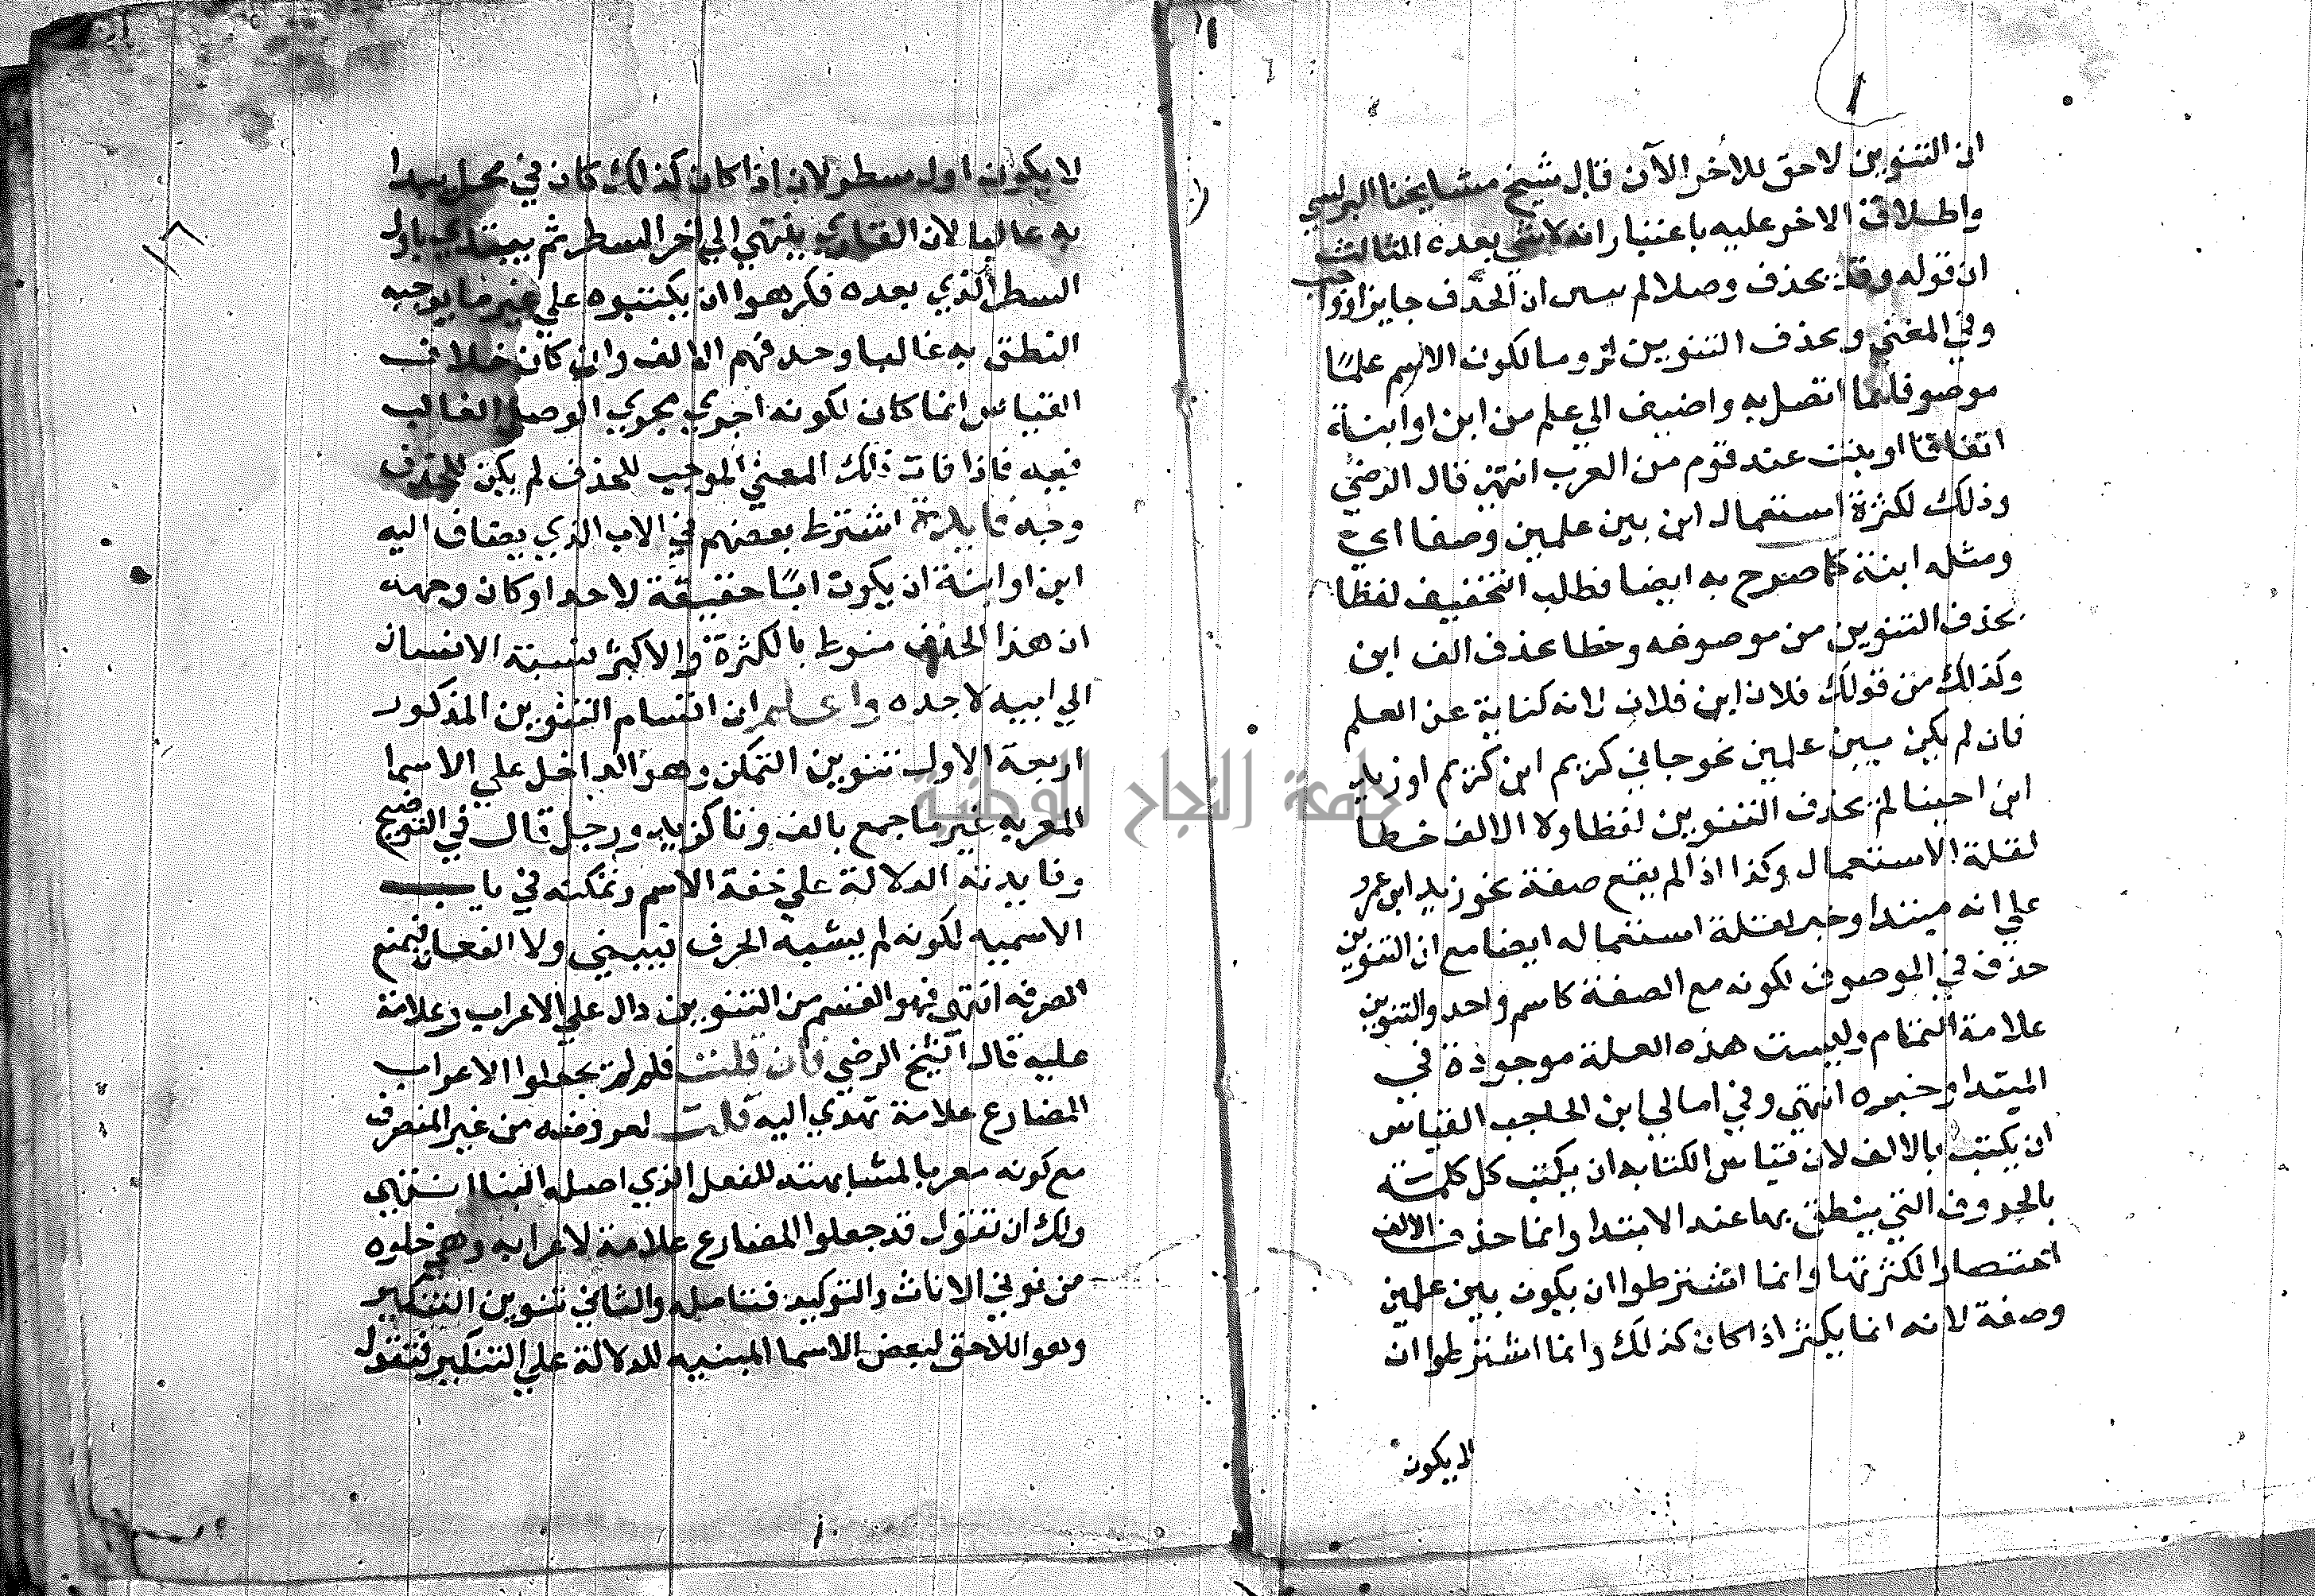 ان التنوين لاحق للأخر الآن قال شيخ مشايخنا البرلسي
واطلاق الاخر عليه باعتبار انه لاشي بعده الثالث
ان قوله وقد يحذف وصلا لم يبين ان الحذف جايز او واجب
وفي المغني ويحذف التنوين لزوما لكون الاسم علمًا
موصوفا بما اتصل به واضيف الي علم من ابن او ابنة
اتفاقا او بنت عند قوم من العرب انتهى قال الرضي
وذلك لكثرة استعمال ابن بين علمين وصفا اي
ومثله ابنة كما صرح به ايضا فطلب التخفيف لفظا
بحذف التنوين من موصوفه وخطا بحذف الف ابن
وكذالك من قولك فلان ابن فلان لانه كناية عن العلم
فان لم يكن بين علمين نحو جاني كريم ابن كريم او زيد
ابن اخينا لم يحذف التنوين لفظا ولا الالف خطا
لقلة الاستعمال وكذا اذا لم يقع صفة نحو زيد ابن عمرو
علي انه مبتدا وخبر لقلة استعماله ايضا مع ان التنوين
حذف في الموصوف لكونه مع الصفة كاسم واحد والتنوين
علامة التمام وليست هذه العلة موجودة في
المبتدا وخبره انتهي وفي امالي ابن الحاجب القياس
ان يكتب بالالف لان قياس الكتابه ان يكتب كل كلمة
بالحروف التي ينطق بها عند الابتدا وانما حذف الالف
اختصارا لكثرتها وانما اشترطوا ان يكون بين علمين
وصفة لانه انما يكثر اذا كان كذلك وانما اشترطوا ان
لا يكون
١٦
لا يكون اول سطر لان اذا كان كذلك كان في محل يبدا
به غالبا لان القاري ينتهي الي اخر السطر ثم يبتدي باول
السطر الذي بعده فكرهوا ان يكتبوه علي غير ما يوجبه
النطق به غالبا وحذفهم الالف وان كان خلاف
القياس انما كان لكونه اجري مجري الوصل الغالب
فيه فاذا فات ذلك المعني الموجب للحذف لم يكن للحذف
وجه فايدة اشترط بعضهم في الاب الذي يضاف اليه
ابن او ابنة ان يكون ابًا حقيقة لاحد او كان وجهه
ان هذا الحذف منوط بالكثرة والاكثر نسبة الانسان
الي ابيه لاجده واعلم ان اقسام التنوين المذكور
اربعة الاول تنوين التمكن وهو الداخل علي الاسما
المعربه غير ما جمع بالف وتا كزيد ورجل قال في التوضيح
وفايدته الدلالة علي خفة الاسم وتمكنه في باب
الاسميه لكونه لم يشبه الحرف فيبني ولا الفعل فيمنع
الصرف انتهي فهو القسم من التنوين دال علي الاعراب وعلامة
عليه قال الشيخ الرضي فان قلت فلم لم يجعلوا الاعراب
المضارع علامة تهدي اليه قلت لعروضه من غير المنصرف
مع كونه معربا لمشابهته للفعل الذي اصله البنا انتهي
ولك ان تقول قد جعلوا المضارع علامة لاعرابه وهي خلوه
من نوني الاناث والتوكيد فتامله والثاني تنوين التنكير
وهو اللاحق لبعض الاسما المبنيه للدلالة علي التنكير فتقول
جامعة النجاح الوطنية